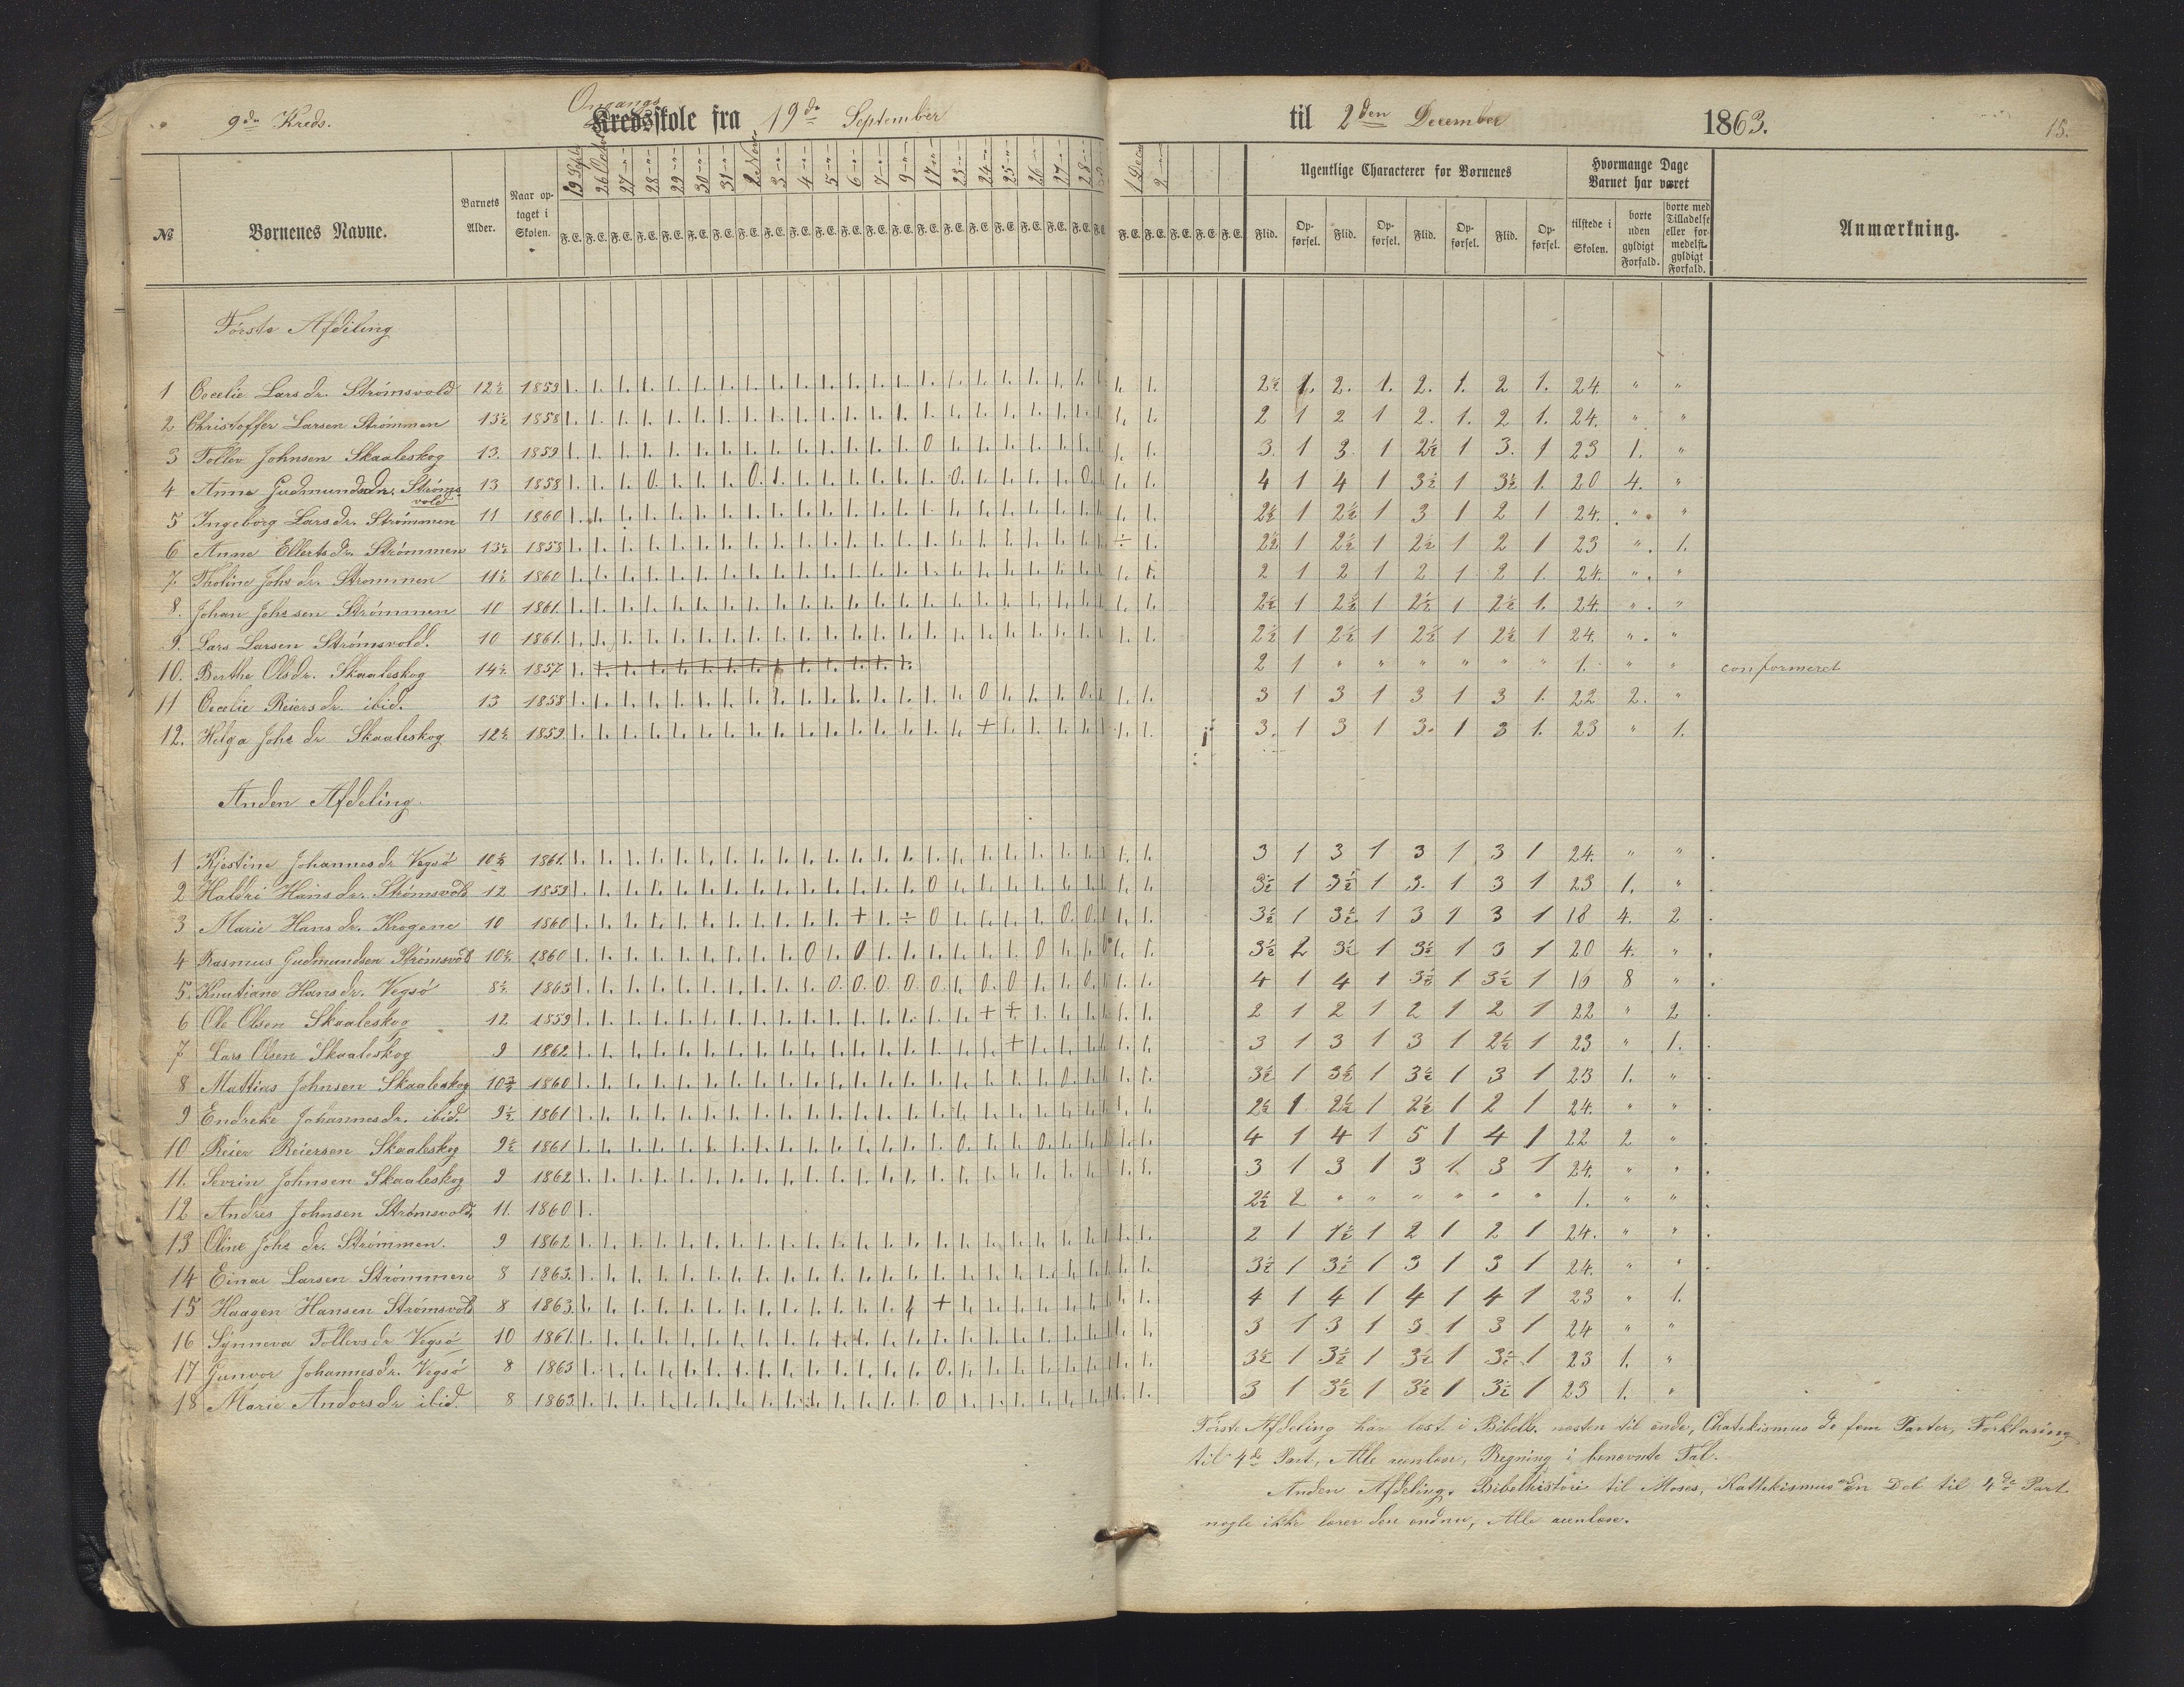 9de Kreds.
Omgangs
Kredsskole fra 19de September til 2den December 1863.
15.
№
Børnenes Navne.
Barnets Alder.
Naar optaget i Skolen.
19 Sept. 26 Octbr 27 -"- 28 -"- 29 -"- 30 -"- 31 -"- 2 Nov 3 -"- 4 -"- 5 -"- 6 -"- 7 -"- 9 -"- 17 -"- 23 -"- 24 -"- 25 -"- 26 -"- 27 -"- 28 -"- 1 Decb 2 -"-
F. E. F. E. F. E. F. E. F. E. F. E. F. E. F. E. F. E. F. E. F. E. F. E. F. E. F. E. F. E. F. E. F. E. F. E. F. E. F. E. F. E. F. E. F. E. F. E. F. E. F. E.
Ugentlige Characterer for Børnenes
Flid. Opførsel. Flid. Opførsel. Flid. Opførsel. Flid. Opførsel.
Hvormange Dage Barnet har været
tilstede i Skolen.
borte uden gyldigt Forfald.
borte med Tilladelse eller formedelst gyldigt Forfald.
Anmærkning.
Første Afdeling
1 Cecelie Larsdr. Strømsvold 12½ 1859 2½ 1. 2. 1. 2. 1. 2 1. 24. " "
2 Christoffer Larsen Strømmen 13½ 1858 2 1 2 1 2. 1. 2 1. 24. " "
3 Tollev Johnsen Skaaleskog 13. 1859 3. 1 3 1 2½ 1 3. 1 23 1. "
4 Anna Gudmundsdr. Strømsvold 13 1858 4 1 4 1 3½ 1 3½ 1. 20 4. "
5 Ingeborg Larsdr. Strømmen 11 1860 2½ 1 2½ 1 3 1 2 1 24. " "
6 Anne Ellertsdr. Strømmen 13½ 1858 2½ 1 2½ 1 2½ 1 2 1 23 " 1.
7. Tholine Johsdr. Strømmen 11½ 1860 2 1 2 1 2 1 2 1. 24. " "
8. Johan Johssen Strømmen 10 1861. 2½ 1 2½ 1 2½ 1 2½ 1. 24. " "
9. Lars Larsen Strømsvold. 10 1861. 2½ 1 2½ 1 2½ 1 2½ 1 24. " "
10. Berthe Olsdr. Skaaleskog 14½ 1857. 2 1 " " " " " " 1. " " conformeret
11 Cecelie Reiersdr. ibid. 13 1858 3 1 3 1 3 1 3 1. 22 2. "
12. Helga Johsdr Skaaleskog 12½ 1859. 3. 1 3 1 3. 1 3 1. 23 " 1.
Anden Afdeling.
1 Kjestine Johannesdr Vegsø 10½ 1861. 3 1 3 1 3 1 3 1 24. " "
2 Haldri Hansdr. Strømsvold 12 1859. 3½ 1 3½ 1 3. 1 3 1 23 1. "
3 Marie Hansdr. Krogene 10 1860 3½ 1 3½ 1 3 1 3 1 18 4. 2
4 Rasmus Gudmundsen Strømsvold 10½ 1860 3½ 2 3½ 1 3½ 1 3 1 20 4. "
5. Knutiane Hansdr. Vegsø 8½ 1863 4 1 4 1 3½ 1 3½ 1 16 8 "
6 Ole Olsen Skaaleskog 12 1859 2 1 2 1 2 1 2 1 22 " 2
7 Lars Olsen Skaaleskog 9 1862 3 1 3 1 3 1 2½ 1 23 " 1.
8 Mattias Johnsen Skaaleskog 10¾ 1860 3½ 1 3½ 1 3½ 1 3 1 23 1. "
9 Endreke Johannesdr. ibid. 9½ 1861 2½ 1 2½ 1 2½ 1 2 1 24. " "
10 Reier Reiersen Skaaleskog 9½ 1861 4 1 4 1 5 1 4 1 22 2 "
11. Sevrin Johnsen Skaaleskog 9 1862 3 1 3 1 3 1 3 1 24. " "
12 Andres Johnsen Strømsvold 11. 1860 2½ 2 " " " " " " 1. " "
13 Oline Johsdr. Strømmen. 9 1862 2 1 1½ 1 2 1 2 1 24. " "
14 Einar Larsen Strømmen 8 1863. 3½ 1 3½ 1 3 1 3 1 24. " "
15 Haagen Hansen Strømsvold 8 1863. 4 1 4 1 4 1 4 1 23 " 1.
16 Synneva Tollevsdr Vegsø 10 1861. 3 1 3 1 3 1 3 1 24 " "
17 Gunvor Johannesdr. Vegsø 8 1863 3½ 1 3½ 1 3½ 1 3½ 1 23 1. "
18 Marie Andorsdr ibid. 8 1863. 3 1 3½ 1 3½ 1 3½ 1 23 1. "
Første Afdeling har læst i Bibelh. næsten til ende, Chatekismus de fem Parter, Forklaring
til 4de Part, Alle reenlæse, Regning i benævnte Tal.
Anden Afdeling. Bibelhistori til Moses, Kattekismus en Del til 4de Part
nogle ikke lærer den endnu, Alle reenlæse.